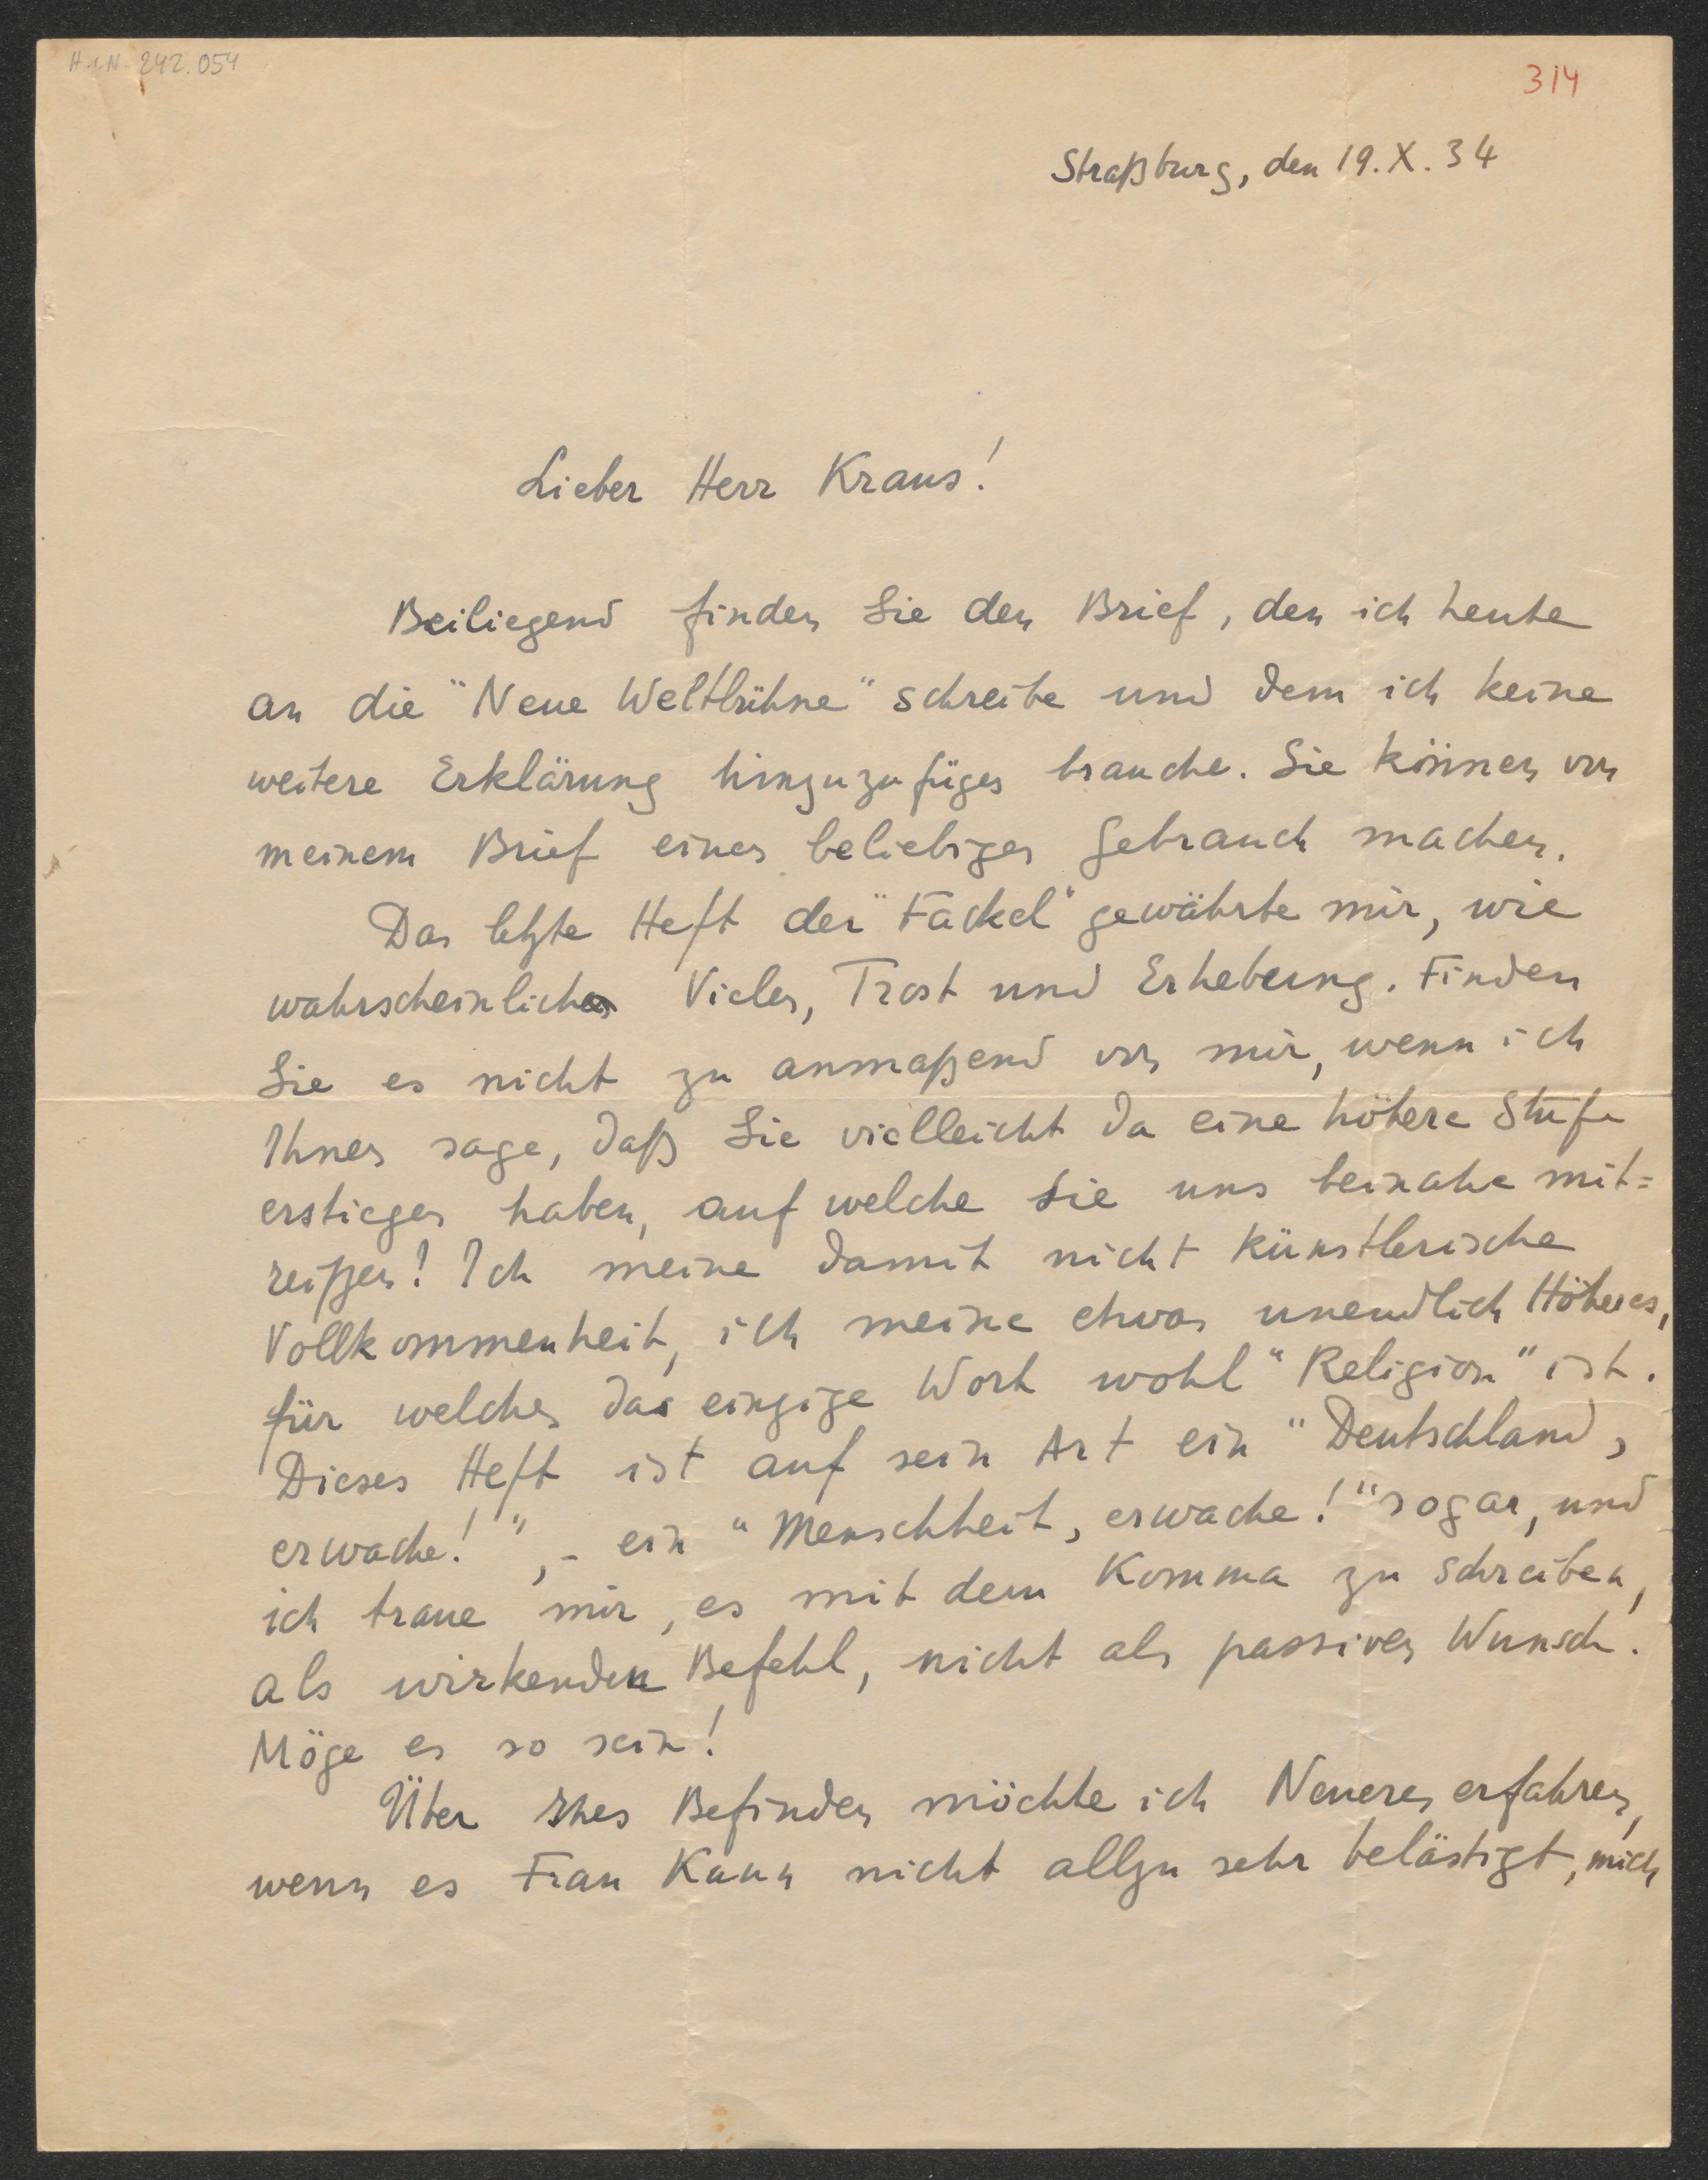 H.I.N. 242.054
314
Straßburg, den 19. X. 34
Lieber Herr Kraus!
Beiliegend finden Sie den Brief, den ich heute
an die "Neue Weltbühne" schreibe und dem ich keine
weitere Erklärung hinzuzufügen brauche. Sie können von
meinem Brief einen beliebigen Gebrauch machen.
Das letzte Heft der "Fackel" gewährte mir, wie
wahrscheinlich Vielen, Trost und Erhebung. Finden
Sie es nicht zu anmaßend von mir, wenn ich
Ihnen sage, daß Sie vielleicht da eine höhere Stufe
erstiegen haben, auf welche Sie uns beinahe mit=
reißen! Ich meine damit nicht künstlerische
Vollkommenheit, ich meine etwas unendlich Höheres,
für welches das einzige Wort wohl "Religion" ist.
Dieses Heft ist auf sein Art ein "Deutschland,
erwache!", - ein "Menschheit, erwache!" sogar, und
ich traue mir, es mit dem Komma zu schreiben,
als wirkenden Befehl, nicht als passiven Wunsch.
Möge es so sein!
Über Ihr Befinden möchte ich Neueres erfahren,
wenn es Frau Kann nicht allzu sehr belästigt, mich